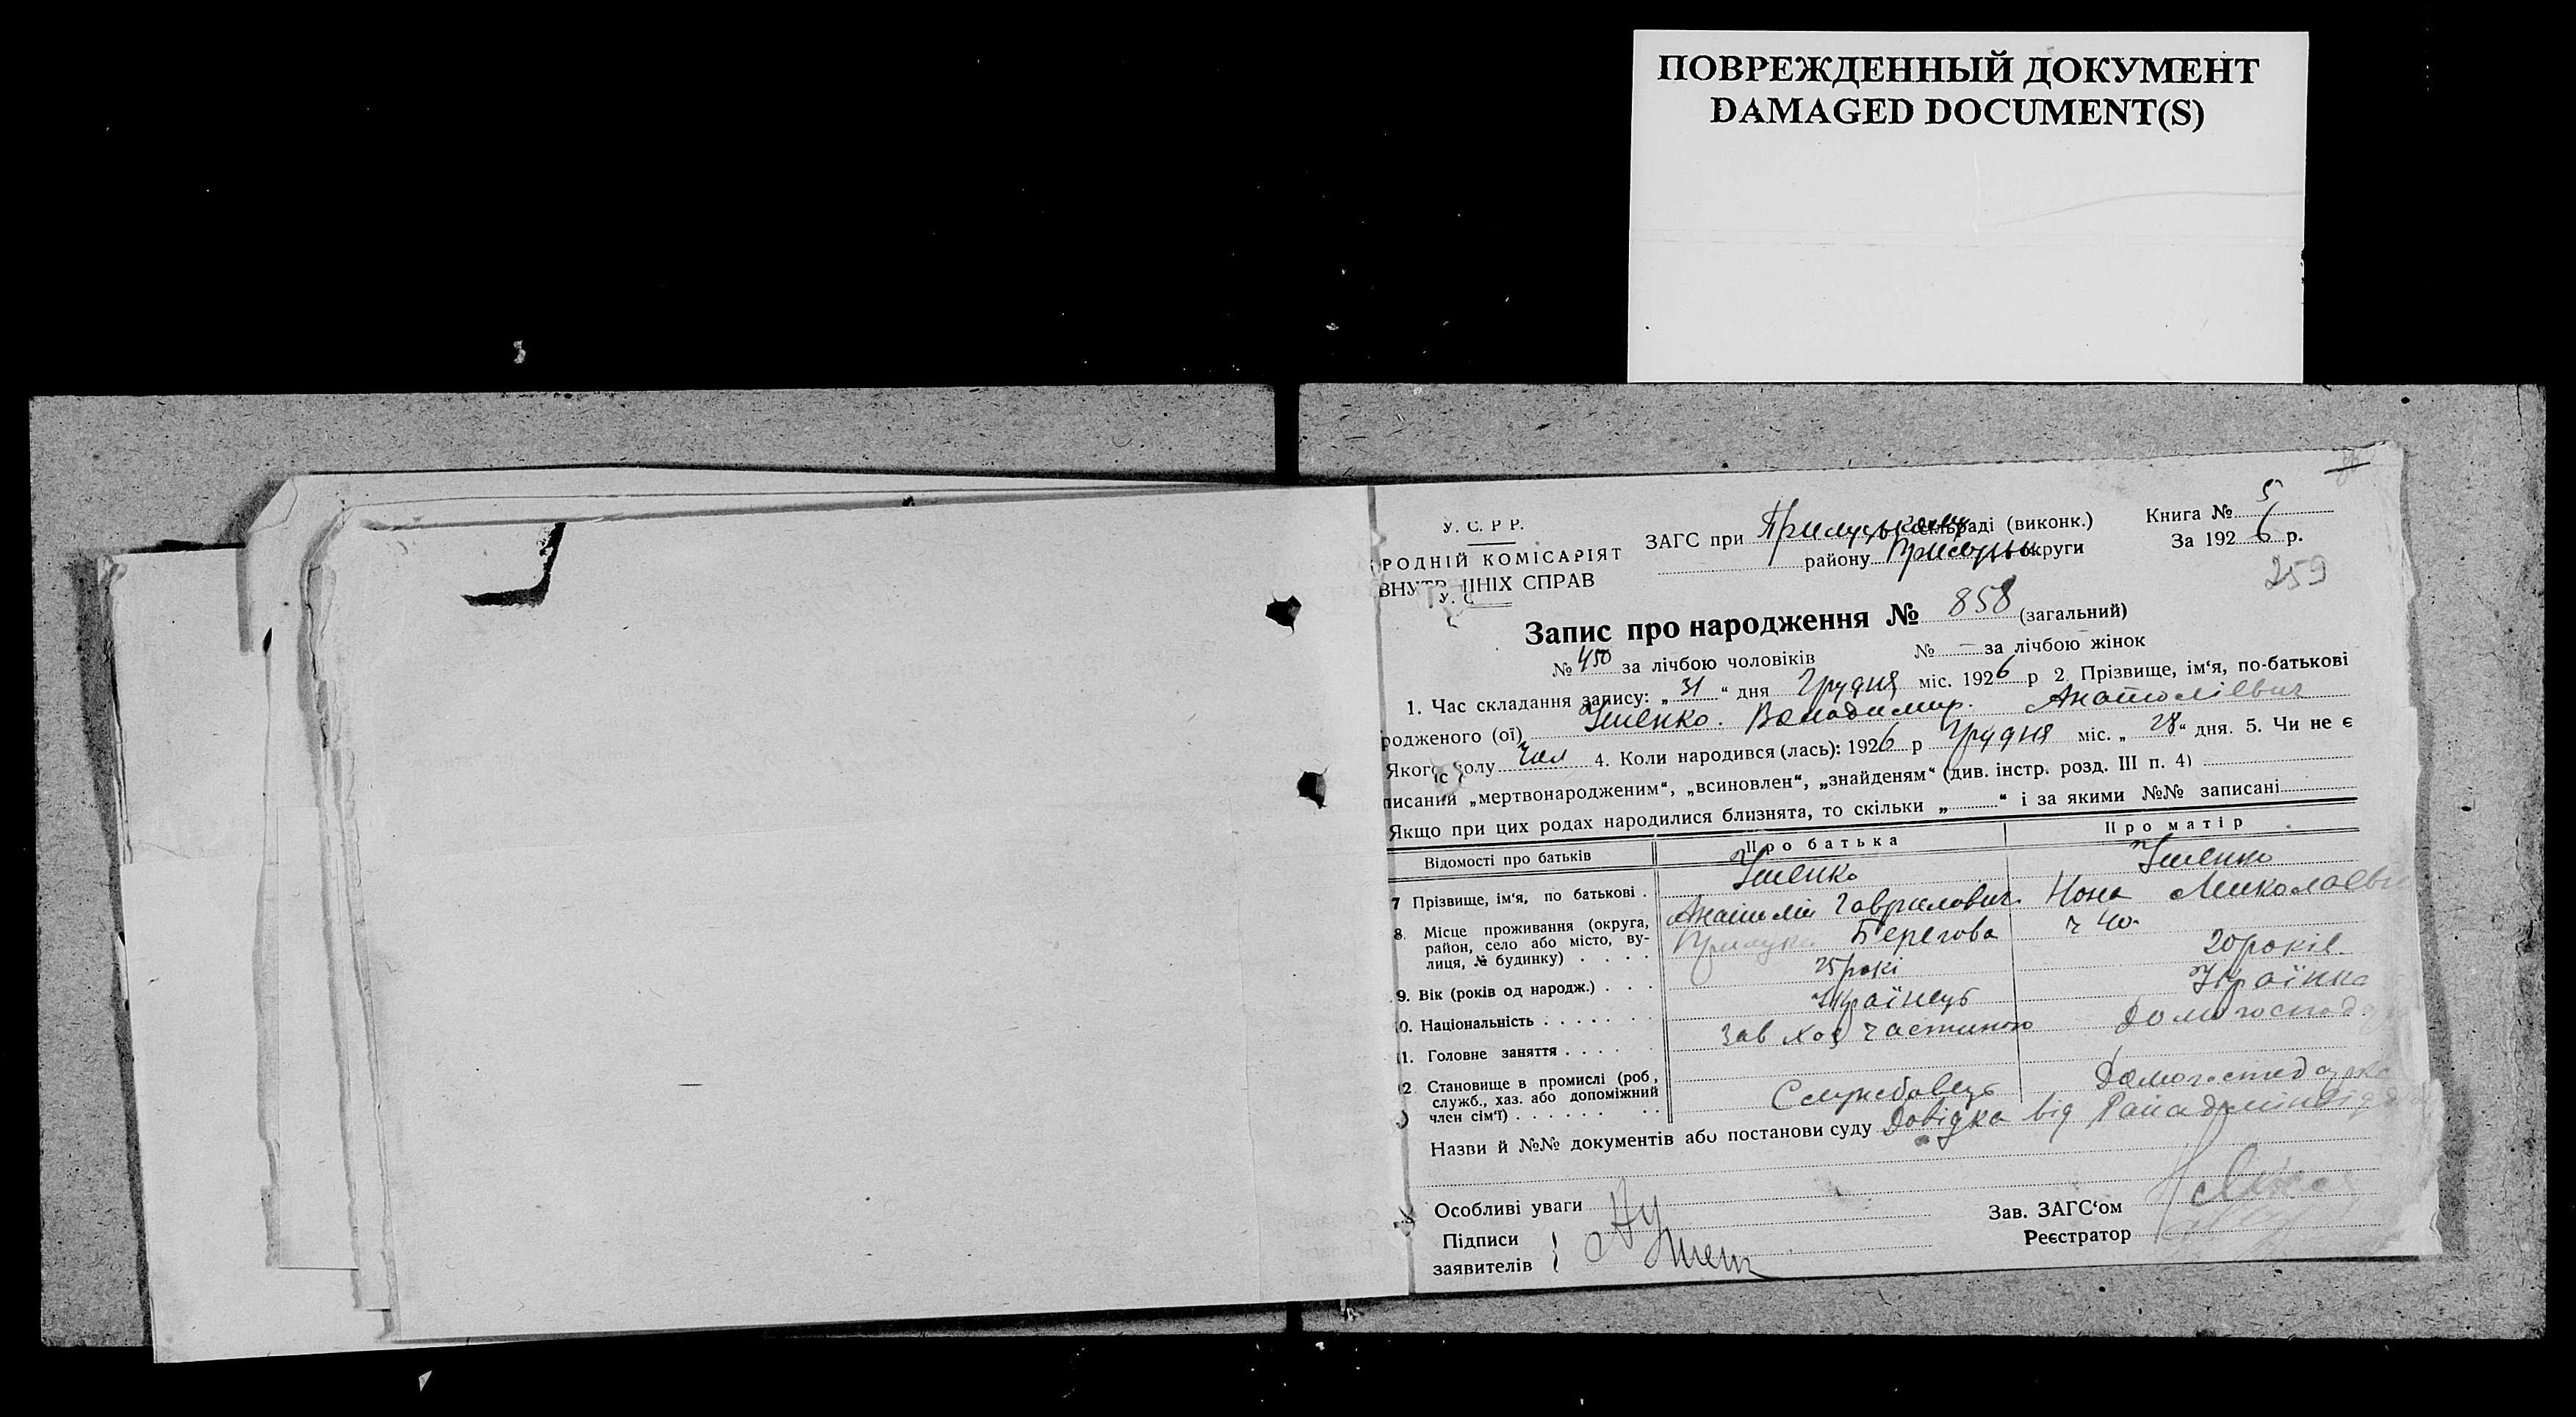 ПОВРЕЖДЕННЫЙ ДОКУМЕНТ
DAMAGED DOCUMENT(S)
У. С. Р Р.
РОДНІЙ КОМІСАРІЯТ
ВНУТР ІШНІХ СПРАВ
У. С
ЗАГС при Прилуцькому сільраді (виконк.)
району Прилуцьк округи
Книга № 5
За 1926 р.
259
Запис про народження № 858 (загальний)
№ 450 за лічбою чоловіків № — за лічбою жінок
1. Час складання запису: „ 31 “ дня Грудня міс. 1926 р 2. Прізвище, ім‘я, по-батькові
родженого (ої) Ященко. Володимир. Анатолієвич
Якого полу Чол 4. Коли народився (лась): 1926 р Грудня міс. „ 28 “ дня. 5. Чи не є
писаний „мертвонародженим“, „всиновлен“, „знайденям“ (див. інстр. розд. III п. 4)
Якщо при цих родах народилися близнята, то скільки „ “ і за якими №№ записані
Відомості про батьків Про батька Про матір
7 Прізвище, ім‘я, по батькові . Анатолій Гаврилович Нона Миколаєв
8. Місце проживання (округа, район, село або місто, вулиця, № будинку) . . . . Прилуки Берегова ч 40.
9. Вік (років од народж.) . . . 25 рокі 20 років
0. Національність . . . . . . . Українець Українка
1. Головне заняття . . . . . Зав хоз частиною Домогоспод
2. Становище в промислі (роб, служб., хаз. або допоміжний член сім‘ї) . . . . . . . . Службовець Домогосподарка
Назви й №№ документів або постанови суду Довідка від Райадмінвід
Особливі уваги
Підписи
заявителів
Зав. ЗАГС‘ом
Реєстратор